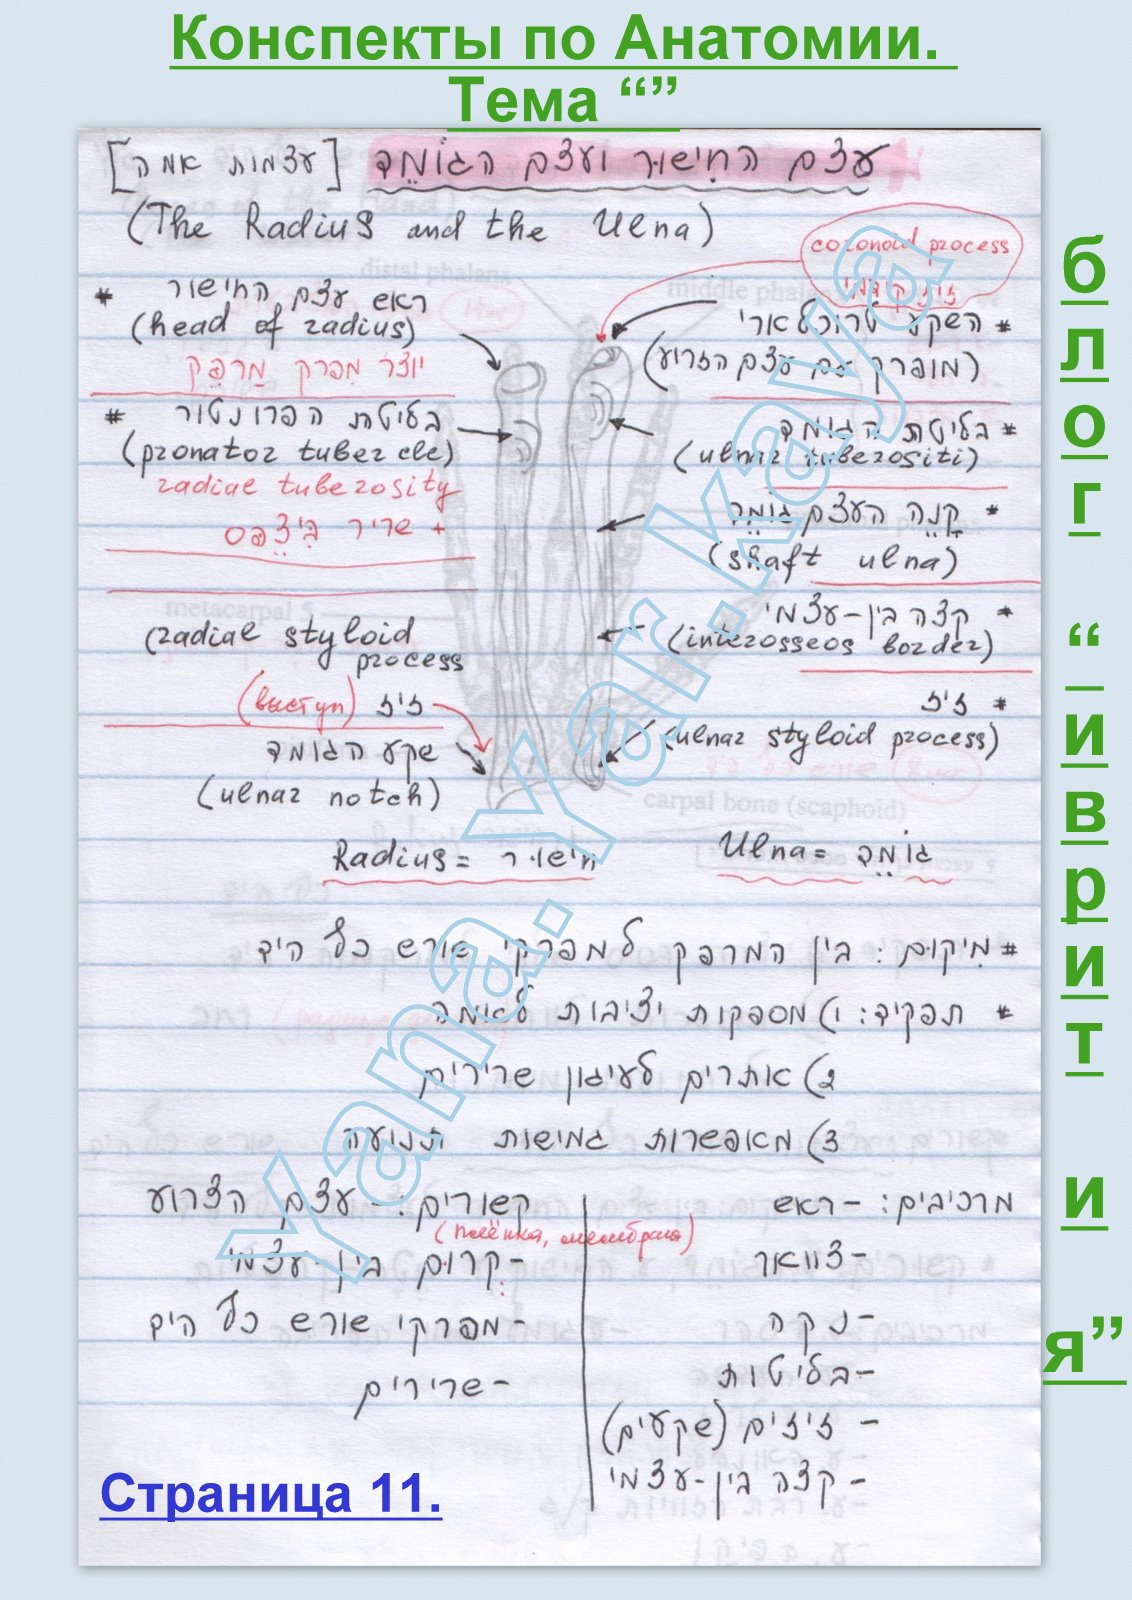 Конспекты по Анатомии.
Тема “”
עצם החִישוּר ועצם הגוֹמֵד [עצמות אמה]
(The Radius and the Ulna)
coronoid process
* ראש עצם החישור
(head of radius)
יוצר מִפרק מַרפֵּק
* השקע הטרוכלארי
(מופרק עם עצם הזרוע)
* בליטת הפרונטור
(pronator tubercle)
radial tuberosity
+ שריר בִּיצֶפּס
* בליטת הגומד
(ulnar tuberositi)
* קָנֵה העצם גוֹמֵד
(shaft ulna)
* קצה בין-עצמי
(interosseos border)
(radial styloid
process
(выступ) זיז
* זיז
(ulnar styloid process)
שקע הגומד
(ulnar notch)
Radius = חישוּר
Ulna = גוֹמֵד
* מִיקוּם: בין המרפק למפרקי שורש כף היד
* תפקיד: 1) מספקות יציבות לאמה
2) אתרים לעיגון שרירים
3) מאפשרות גמישות תנועה
מרכיבים: -ראש
-צוואר
-נקה
-בליטות
- זיזים (שקעים)
- קצה בין-עצמי
קשורים: - עצם הזרוע
(плёнка, мембрана)
-קרוּם בין-עצמי
-מפרקי שורש כף היד
-שרירים
Страница 11.
блог “иврит и я”
Yana.Yar.kaya